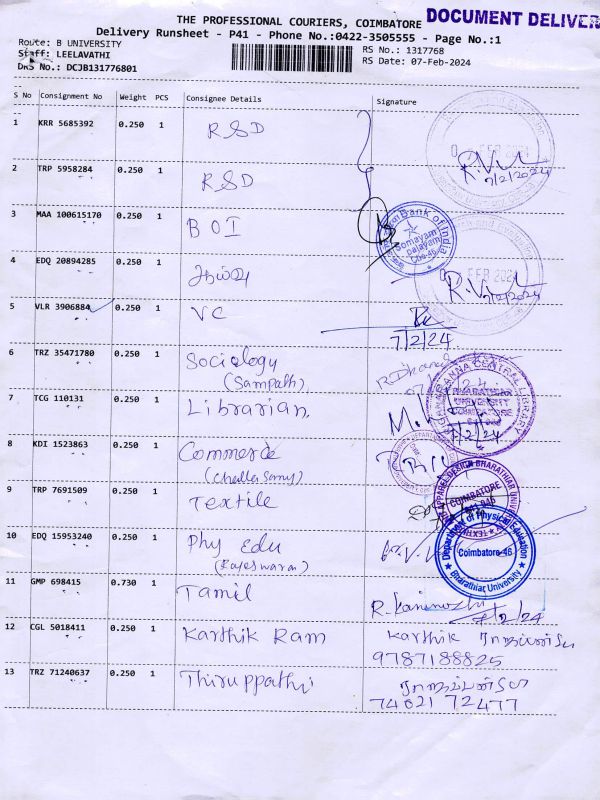 THE PROFESSIONAL COURIERS, COIMBATORE DOCUMENT DELIVER
Delivery Runsheet - P41 - Phone No.:0422-3505555 - Page No.:1
Route: B UNIVERSITY RS No.: 1317768
Staff: LEELAVATHI RS Date: 07-Feb-2024
DRS No.: DCJB131776801
S No Consignment No Weight PCS Consignee Details Signature
1 KRR 5685392 0.250 1 RSD
7/2/24
2 TRP 5958284 0.250 1 RSD
3 MAA 100615170 0.250 1 BOI
Bank of India
Somayam
palayam
Cbe-46
4 EDQ 20894285 0.250 1
FEB 2024
7/2/2024
5 VLR 3906884 0.250 1 VC
7/2/24
6 TRZ 35471780 0.250 1 Sociology
(Sampath)
7 TCG 110131 0.250 1 Librarian.
CENTRAL LIBRARY
BHARATHIAR
UNIVERSITY
COIMBATORE
7/2/24
8 KDI 1523863 0.250 1 Commerce
9 TRP 7691509 0.250 1 Textile
APPAREL DESIGN BHARATHIAR
COIMBATORE
641 046
10 EDQ 15953240 0.250 1 Phy Edu
(Rajeswaran)
Department of Physical Education
Coimbatore-46
Bharathiar University
11 GMP 698415 0.730 1 Tamil
R. Kanimozhi 7/2/24
12 CGL 5018411 0.250 1 Karthik Ram Karthik
9787188825
13 TRZ 71240637 0.250 1 Thiruppathi
74021 72477